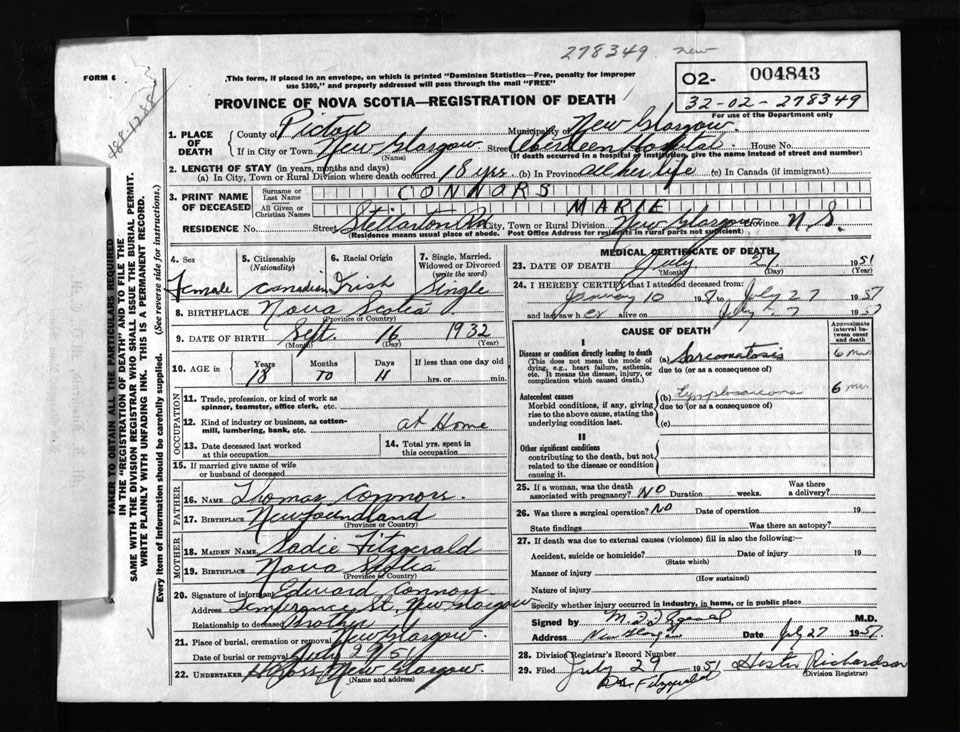 278349 new
FORM 6
This form, if placed in an envelope, on which is printed "Dominion Statistics—Free, penalty for improper
use $300," and properly addressed will pass through the mail "FREE"
O2- 004843
32-02-278349
For use of the Department only
PROVINCE OF NOVA SCOTIA—REGISTRATION OF DEATH
1. PLACE OF DEATH
County of Pictou Municipality of New Glasgow.
If in City or Town New Glasgow Street Aberdeen Hospital House No.
(Name) (If death occurred in a hospital or institution, give the name instead of street and number)
2. LENGTH OF STAY (in years, months and days)
(a) In City, Town or Rural Division where death occurred 18 yrs (b) In Province all her life (c) In Canada (if immigrant)
3. PRINT NAME OF DECEASED
Surname or Last Name CONNORS
All Given or Christian Names MARIE
RESIDENCE No. Street Stellarton Rd City, Town or Rural Division New Glasgow Province N.S.
(Residence means usual place of abode. Post Office Address for residents in rural parts not sufficient)
4. Sex Female
5. Citizenship (Nationality) Canadian
6. Racial Origin Irish
7. Single, Married, Widowed or Divorced (write the word) Single
8. BIRTHPLACE Nova Scotia
(Province or Country)
9. DATE OF BIRTH Sept. 16 1932
(Month) (Day) (Year)
10. AGE in Years 18 Months 10 Days 11 If less than one day old hrs. or min.
OCCUPATION
11. Trade, profession, or kind of work as
spinner, teamster, office clerk, etc.
12. Kind of industry or business, as cotton-
mill, lumbering, bank, etc. at Home
13. Date deceased last worked
at this occupation
14. Total yrs. spent in
this occupation
15. If married give name of wife
or husband of deceased
FATHER
16. NAME Thomas Connors.
17. BIRTHPLACE Newfoundland
(Province or Country)
MOTHER
18. MAIDEN NAME Sadie Fitzgerald
19. BIRTHPLACE Nova Scotia
(Province or Country)
20. Signature of informant Edward Connors
Address Temperance St. New Glasgow
Relationship to deceased Brother
21. Place of burial, cremation or removal New Glasgow.
Date of burial or removal July 29 51
22. UNDERTAKER New Glasgow.
(Name and address)
MEDICAL CERTIFICATE OF DEATH
23. DATE OF DEATH July 27 1951
(Month) (Day) (Year)
24. I HEREBY CERTIFY that I attended deceased from:
January 10 to July 27 1951
and last saw her alive on July 27 1951
CAUSE OF DEATH
Approximate interval between onset and death
I
Disease or condition directly leading to death (a) Sarcomatosis 6 mos
(This does not mean the mode of dying, e.g., heart failure, asthenia, etc. It means the disease, injury, or complication which caused death.)
due to (or as a consequence of)
Antecedent causes (b) Lymphosarcoma 6 mos
Morbid conditions, if any, giving rise to the above cause, stating the underlying condition last.
due to (or as a consequence of)
(c)
II
Other significant conditions
contributing to the death, but not
related to the disease or condition
causing it.
25. If a woman, was the death
associated with pregnancy? NO Duration weeks. Was there a delivery?
26. Was there a surgical operation? NO Date of operation 19
State findings Was there an autopsy?
27. If death was due to external causes (violence) fill in also the following:—
Accident, suicide or homicide? Date of injury 19
(State which)
Manner of injury
(How sustained)
Nature of injury
Specify whether injury occurred in industry, in home, or in public place
Signed by M.D.
Address New Glasgow Date July 27 1951
28. Division Registrar's Record Number
29. Filed July 29 1951 Hester Richardson
(Division Registrar)
Dr. Fitzgerald
TAKEN TO OBTAIN ALL THE PARTICULARS REQUIRED
IN THE "REGISTRATION OF DEATH" AND TO FILE THE
SAME WITH THE DIVISION REGISTRAR WHO SHALL ISSUE THE BURIAL PERMIT.
WRITE PLAINLY WITH UNFADING INK. THIS IS A PERMANENT RECORD.
Every item of Information should be carefully supplied. (See reverse side for instructions.)